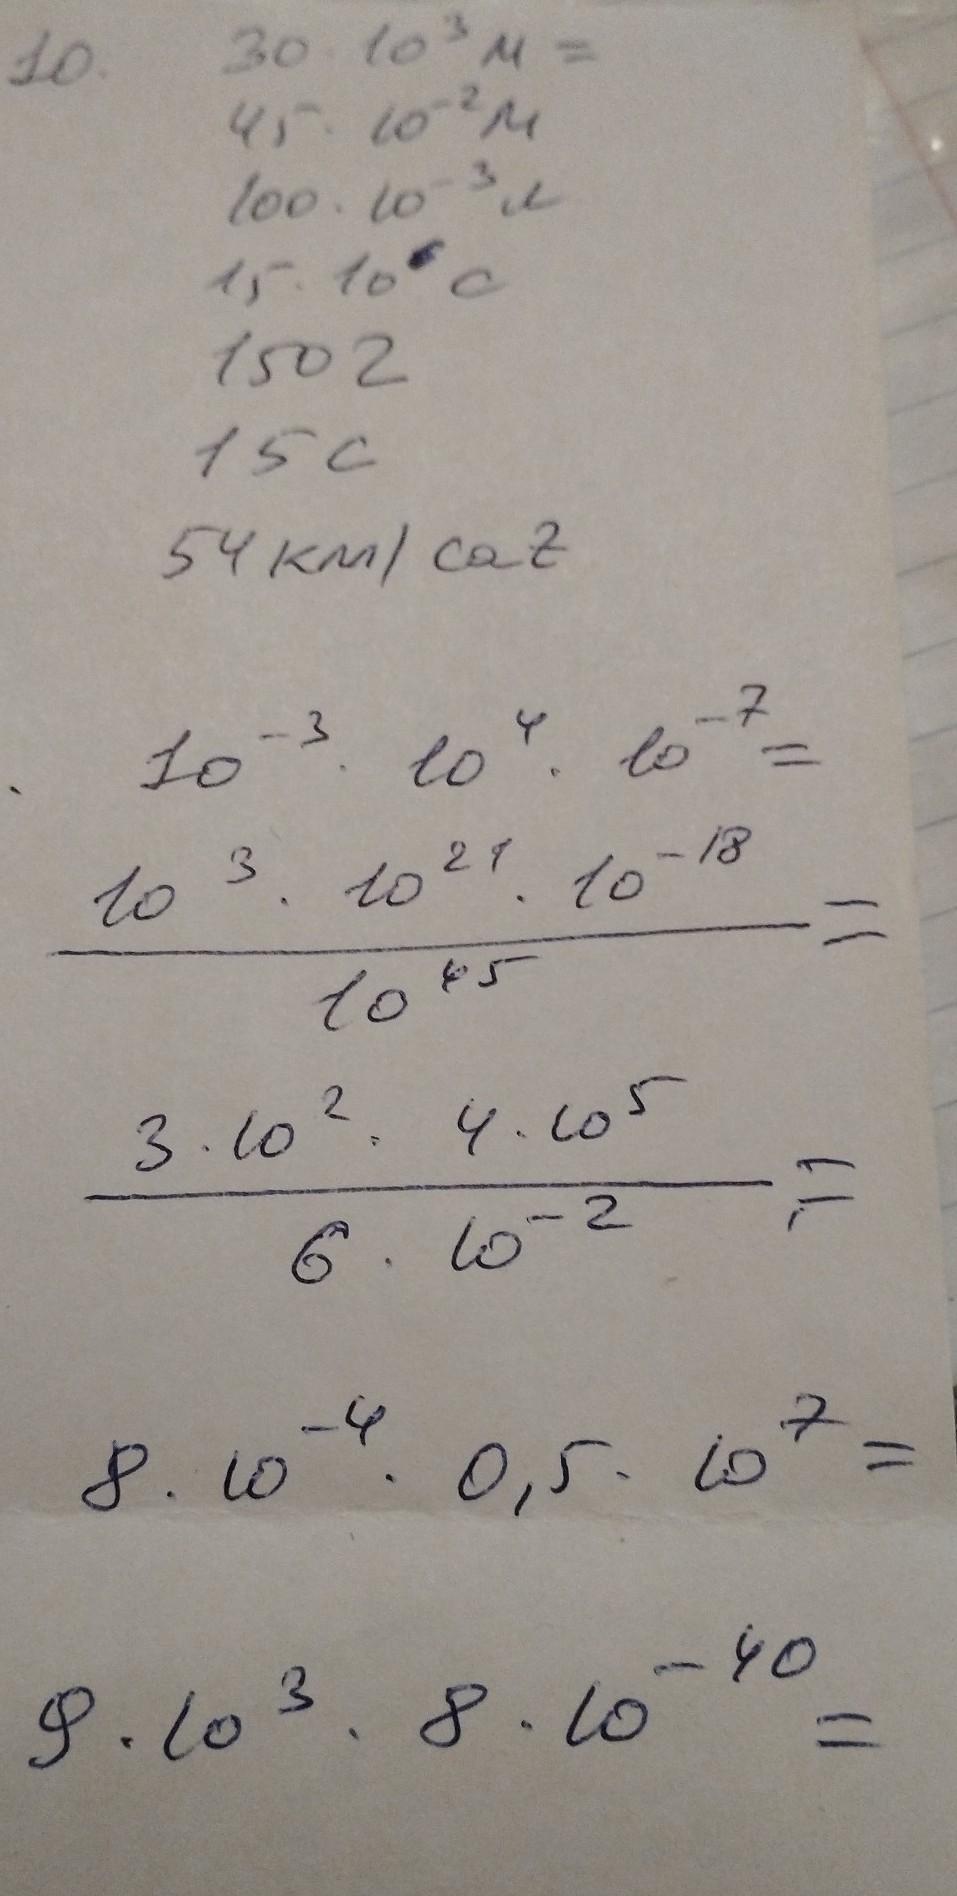 10. 30 · 10³ м =
45 · 10⁻² м
100 · 10⁻³ л
15 · 10⁶ с
150 г
15 с
54 км/саг
10⁻³ · 10⁴ · 10⁻⁷ =
10³ · 10²¹ · 10⁻¹⁸ =
10⁴⁵
3 · 10² · 4 · 10⁵ =
6 · 10⁻²
8 · 10⁻⁴ · 0,5 · 10⁷ =
9 · 10³ · 8 · 10⁻⁴⁰ =